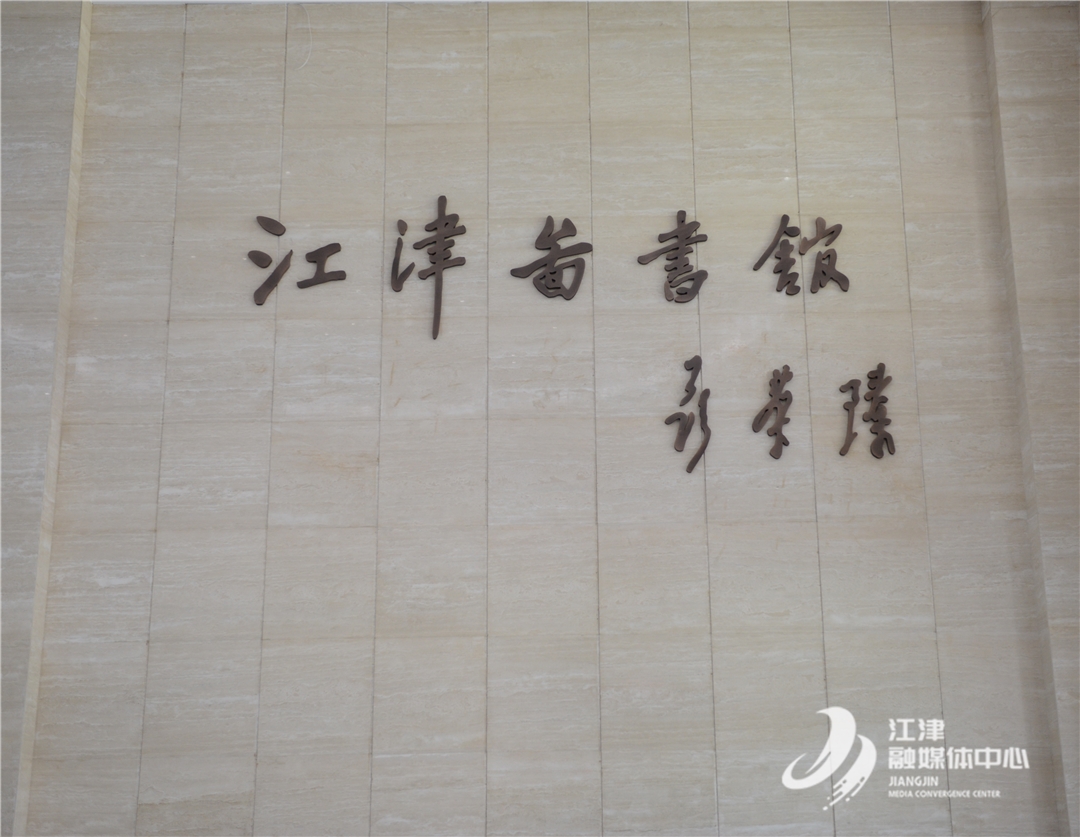 江津畨書舘
聂荣臻
江津
融媒体中心
JIANGJIN
MEDIA CONVERGENCE CENTER